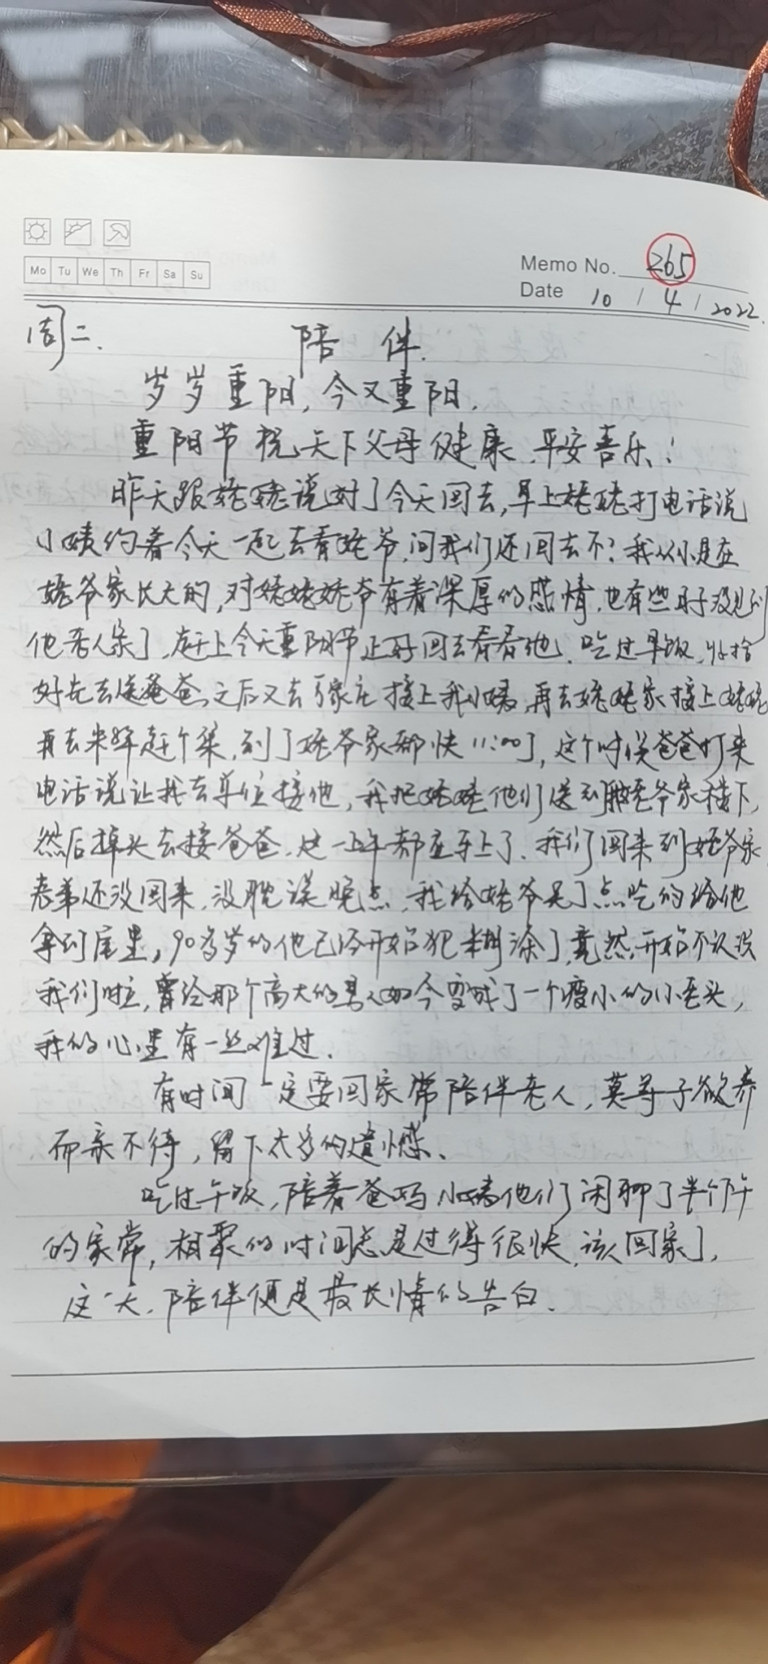 Mo Tu We Th Fr Sa Su
Memo No. 265
Date 10 / 4 / 2022.
周二. 陪 伴.
岁岁重阳,今又重阳.
重阳节祝天下父母健康、平安喜乐!
昨天跟姥姥说好了今天回去,早上姥姥打电话说
小姨约着今天一起去看姥爷,问我们还回去不?我从小是在
姥爷家长大的,对姥姥姥爷有着深厚的感情,也有些日子没见到
他老人家了,赶上今天重阳节正好回去看看他.吃过早饭,收拾
好先去送爸爸,之后又去张庄接上我小姨,再去姥姥家接上姥姥
再去 赶个集,到了姥爷家都快11:00了,这个时候爸爸打来
电话说让我去单位接他,我把姥姥他们送到姥爷家撂下,
然后掉头去接爸爸.这一上午都在车上了.我们回来到姥爷家
表弟还没回来,没耽误晚点,我给姥爷 了点吃的给他
拿到屋里,90多岁的他已经开始犯糊涂了,竟然开始不认识
我们啦,曾经那个高大的男人如今变成了一个瘦小的小老头,
我的心里有一丝难过.
有时间一定要回家常陪伴老人,莫等子欲养
而亲不待,留下太多的遗憾.
吃过午饭,陪着爸妈小姨他们闲聊了半个下午
的家常,相聚的时间总是过得很快,该回家了.
这一天.陪伴便是最长情的告白.